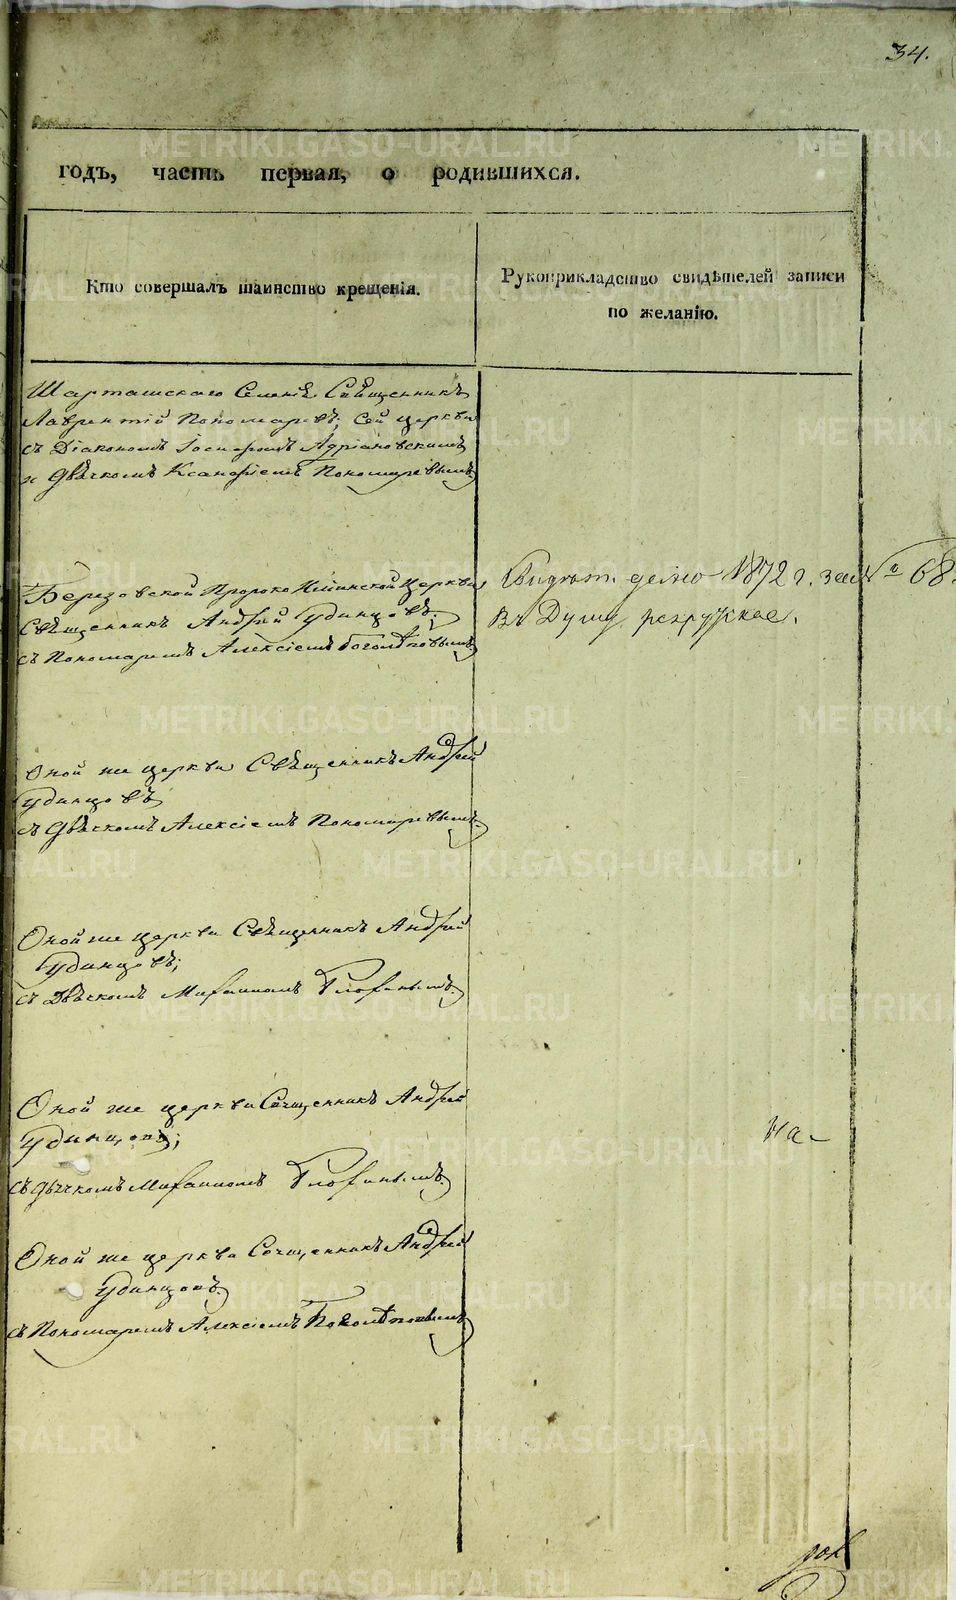 34.
годъ, часть первая, о родившихся.
Кто совершалъ таинство крещенія.
Рукоприкладство свидѣтелей записи
по желанію.
Шарташскаго Селенія Священникъ
Лаврентій Пономаревъ; сей церкви
съ Діакономъ Іосифомъ Адріановскимъ
и Дьячкомъ Ксанфіемъ Пономаревымъ
Березовской Пророко Ильинской Церкви
Священникъ Андрей Удинцовъ,
съ Пономаремъ Алексіемъ Боголѣповымъ
Видѣт. дело 1872 г. за № 68.
въ
Оной же церкви Священникъ Андрей
Удинцовъ
съ Дьячкомъ Алексіемъ Пономаревымъ
Оной же церкви Священникъ Андрей
Удинцовъ;
съ Дьячкомъ Михаиломъ
Оной же церкви Священникъ Андрей
Удинцовъ;
съ Дьячкомъ Михаиломъ
На-
Оной же церкви Священникъ Андрей
Удинцовъ.
съ Пономаремъ Алексіемъ Боголѣповымъ
METRIKI.GASO-URAL.RU